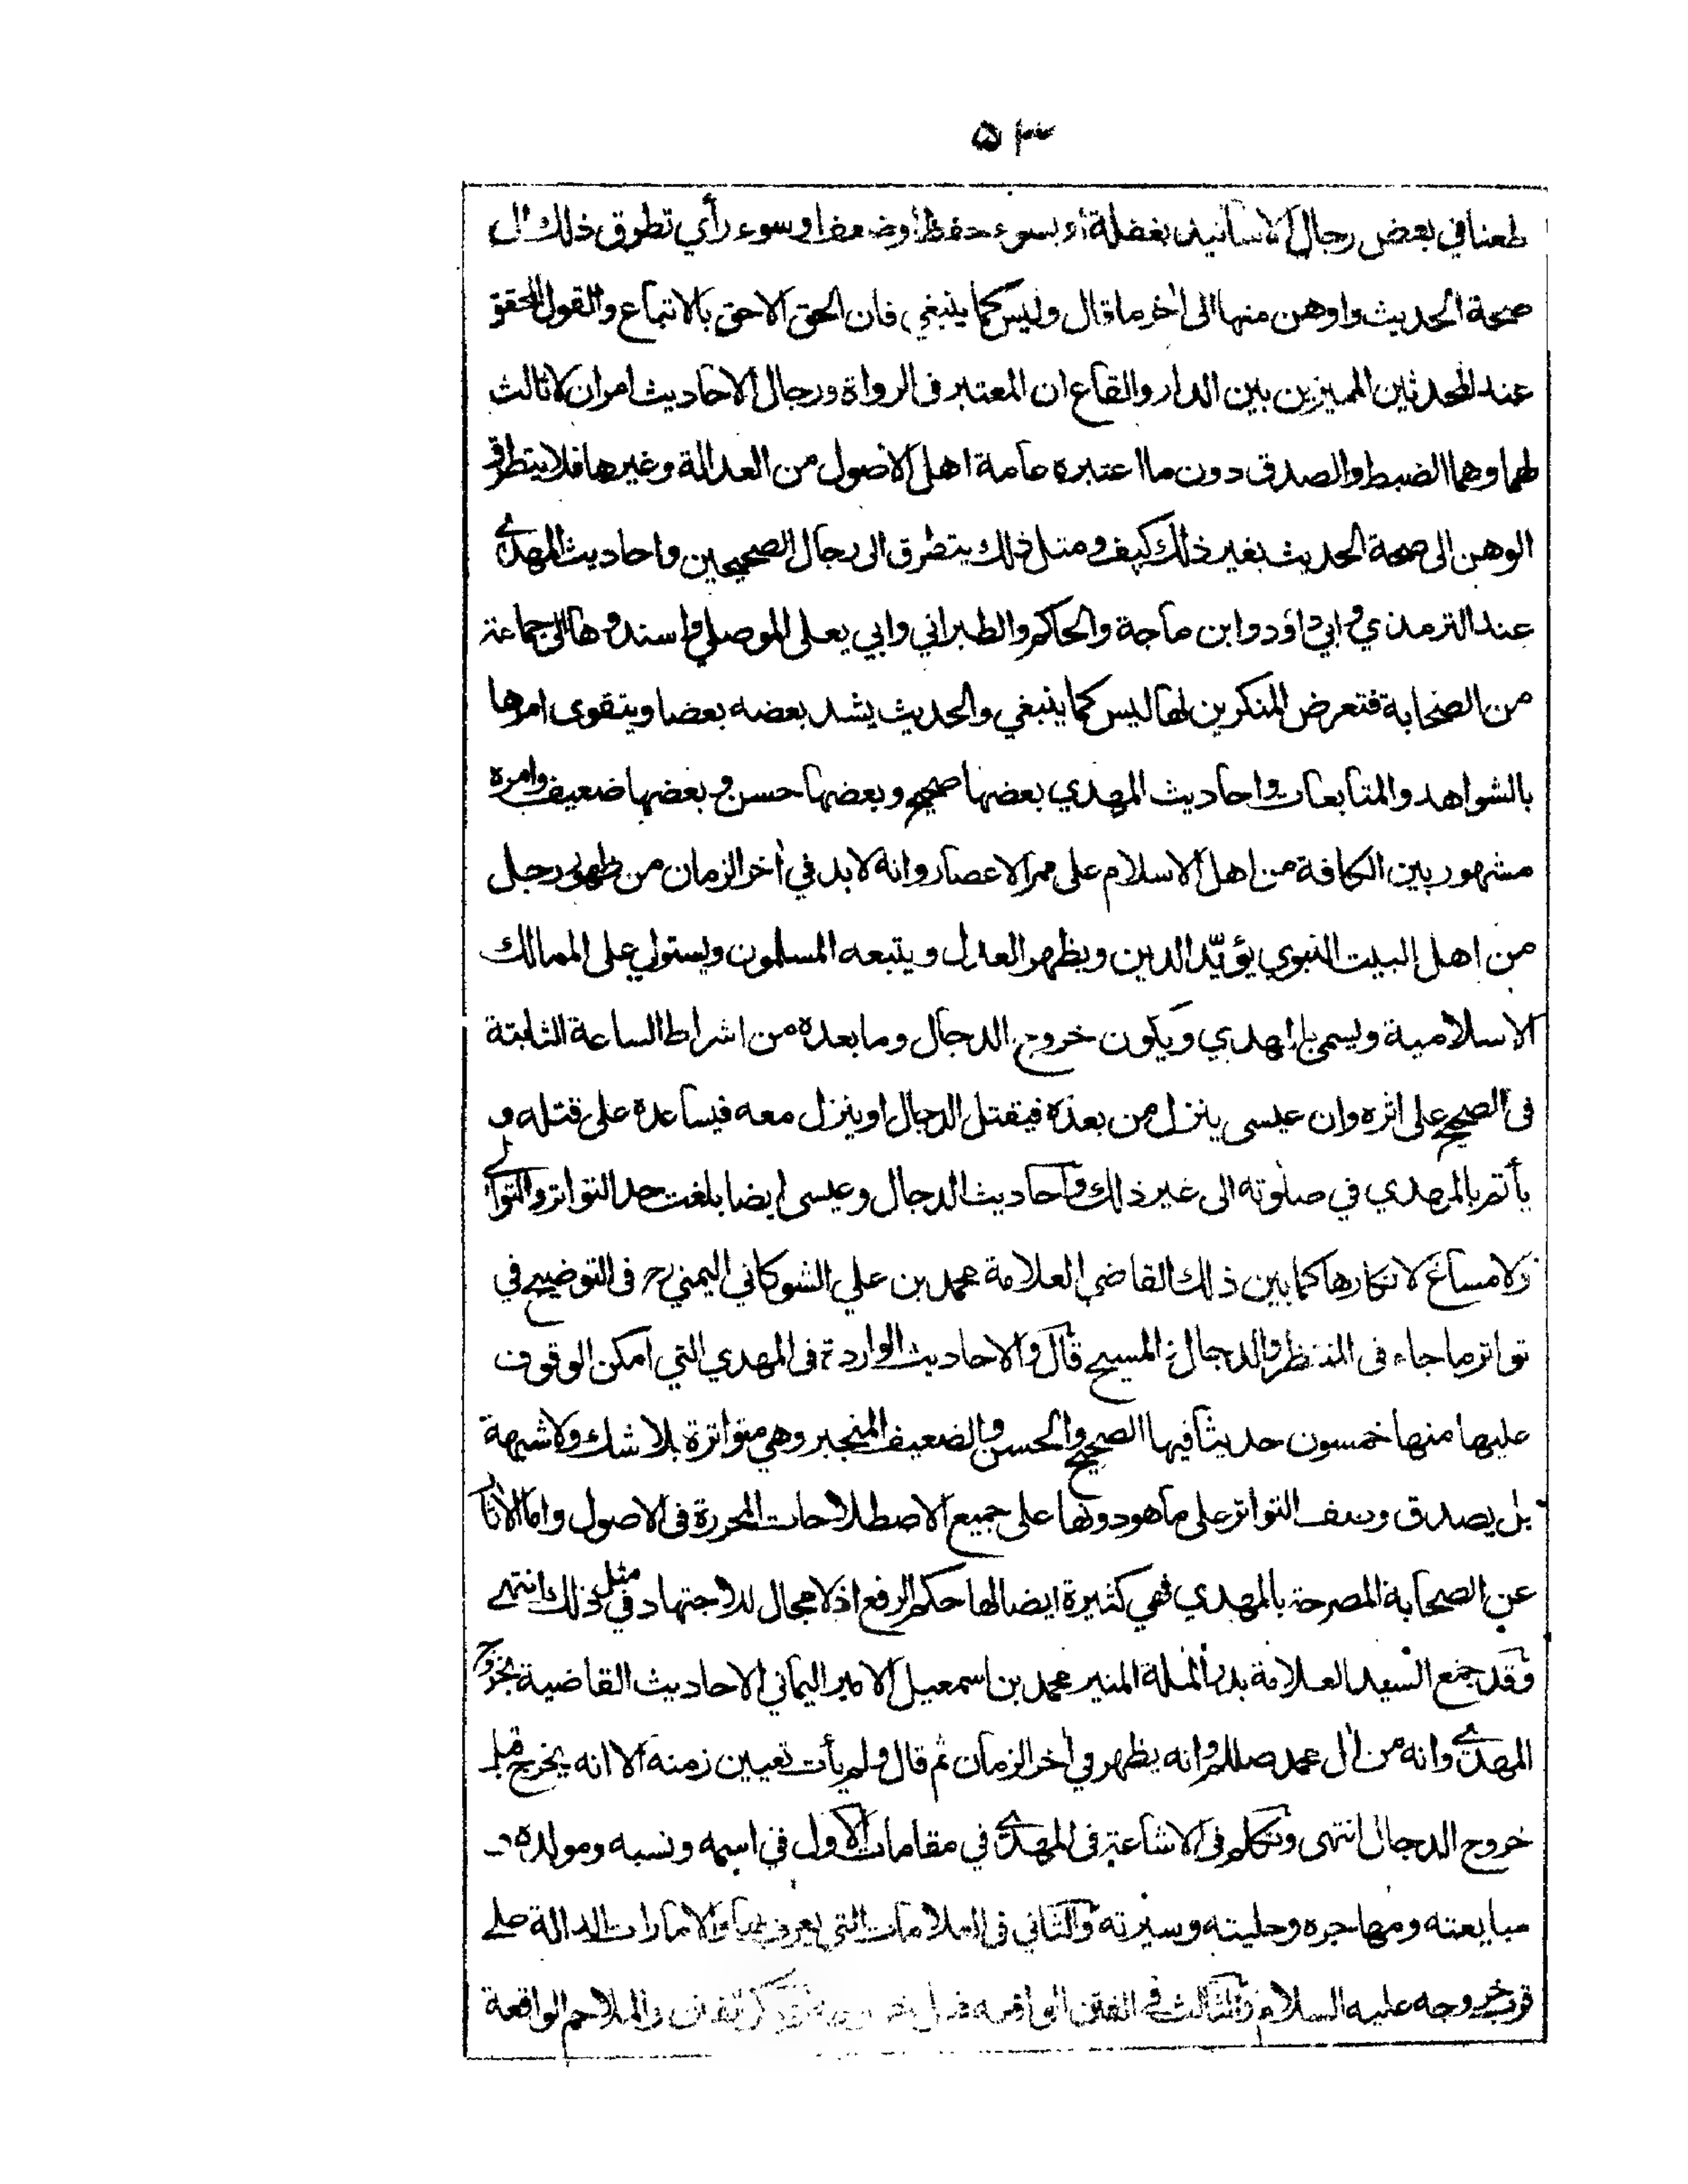 ۵۳
طعنا في بعض رجال الاسانيد بغفلة او بسوء حفظ او ضعف او سوء رأي تطرق ذلك الى
صحة الحديث واوهن منها الى أخر ما قال وليس كما ينبغي فان الحق الاحق بالاتباع والقول المحقق
عند المحدثين المميزين بين الدار والقاع ان المعتبر فى الرواة ورجال الاحاديث امران لا ثالث
لهما وهما الضبط والصدق دون ما اعتبره عامة اهل الاصول من العدالة وغيرها فلا يتطرق
الوهن الى صحة الحديث بغير ذلك كيف ومثل ذلك يتطرق الى رجال الصحيحين واحاديث المهدي
عند الترمذي وابي داؤد وابن ماجة والحاكم والطبراني وابي يعلى الموصلي واسندوها الى جماعة
من الصحابة فتعرض المنكرين لها ليس كما ينبغي والحديث يشد بعضه بعضا ويتقوى امرها
بالشواهد والمتابعات واحاديث المهدي بعضها صحيح وبعضها حسن وبعضها ضعيف وامره
مشهور بين الكافة من اهل الاسلام على ممر الاعصار وانه لا بد في أخر الزمان من ظهور رجل
من اهل البيت النبوي يؤيّد الدين ويظهر العدل ويتبعه المسلمون ويستولي على الممالك
الاسلامية ويسمى بالمهدي ويكون خروج الدجال وما بعده من اشراط الساعة الثابتة
فى الصحيح على اثره وان عيسى ينزل من بعده فيقتل الدجال او ينزل معه فيساعده على قتله و
يأتم بالمهدي في صلوته الى غير ذلك واحاديث الدجال وعيسى ايضا بلغت حد التواتر والتوالي
ولا مساغ لانكارها كما بين ذلك القاضي العلامة محمد بن علي الشوكاني اليمني رح فى التوضيح في
تواتر ما جاء فى المنتظر والدجال والمسيح قال والاحاديث الواردة فى المهدي التي امكن الوقوف
عليها منها خمسون حديثا فيها الصحيح والحسن والضعيف المنجبر وهي متواترة بلا شك ولا شبهة
بل يصدق وصف التواتر على ما هو دونها على جميع الاصطلاحات المحررة فى الاصول واما الأثار
عن الصحابة المصرحة بالمهدي فهي كثيرة ايضا لها حكم الرفع اذ لا مجال للاجتهاد في مثل ذلك انتهى
وقد جمع السيد العلامة بدر الملة المنير محمد بن اسمعيل الامير اليماني الاحاديث القاضية بخروج
المهدي وانه من أل محمد صللم وانه يظهر في أخر الزمان ثم قال ولم يأت تعيين زمنه الا انه يخرج قبل
خروج الدجال انتهى وتكلم فى الاشاعة فى المهدي في مقامات الاول في اسمه ونسبه ومولده و
مبايعته ومهاجره وحليته وسيرته والثاني فى العلامات التي يعرف بها والامارات الدالة على
قرب خروجه عليه السلام والثالث في الفتن الواقعة قبل خروجه والملاحم الواقعة